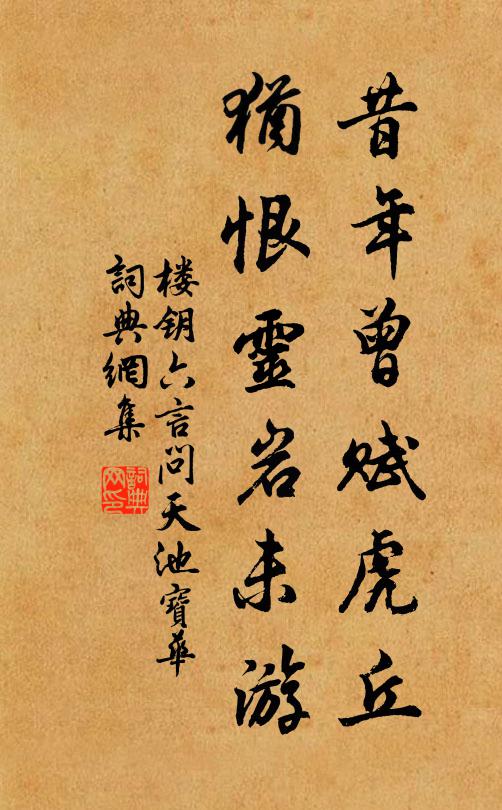 昔年曾赋虎丘
犹恨靈岩未游
楼钥六言问天池寶華
詞典網集
詞典网印